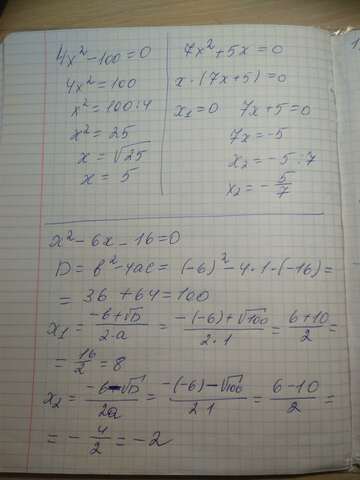 4x² - 100 = 0
4x² = 100
x² = 100 : 4
x² = 25
x = √25
x = 5
7x² + 5x = 0
x · (7x + 5) = 0
x₁ = 0 7x + 5 = 0
7x = -5
x₂ = -5 : 7
x₂ = -5/7
x² - 6x - 16 = 0
D = b² - 4ac = (-6)² - 4 · 1 · (-16) =
= 36 + 64 = 100
x₁ = (-b + √D)/(2·a) = (-(-6) + √100)/(2·1) = (6 + 10)/2 =
= 16/2 = 8
x₂ = (-b - √D)/(2a) = (-(-6) - √100)/(2·1) = (6 - 10)/2 =
= -4/2 = -2